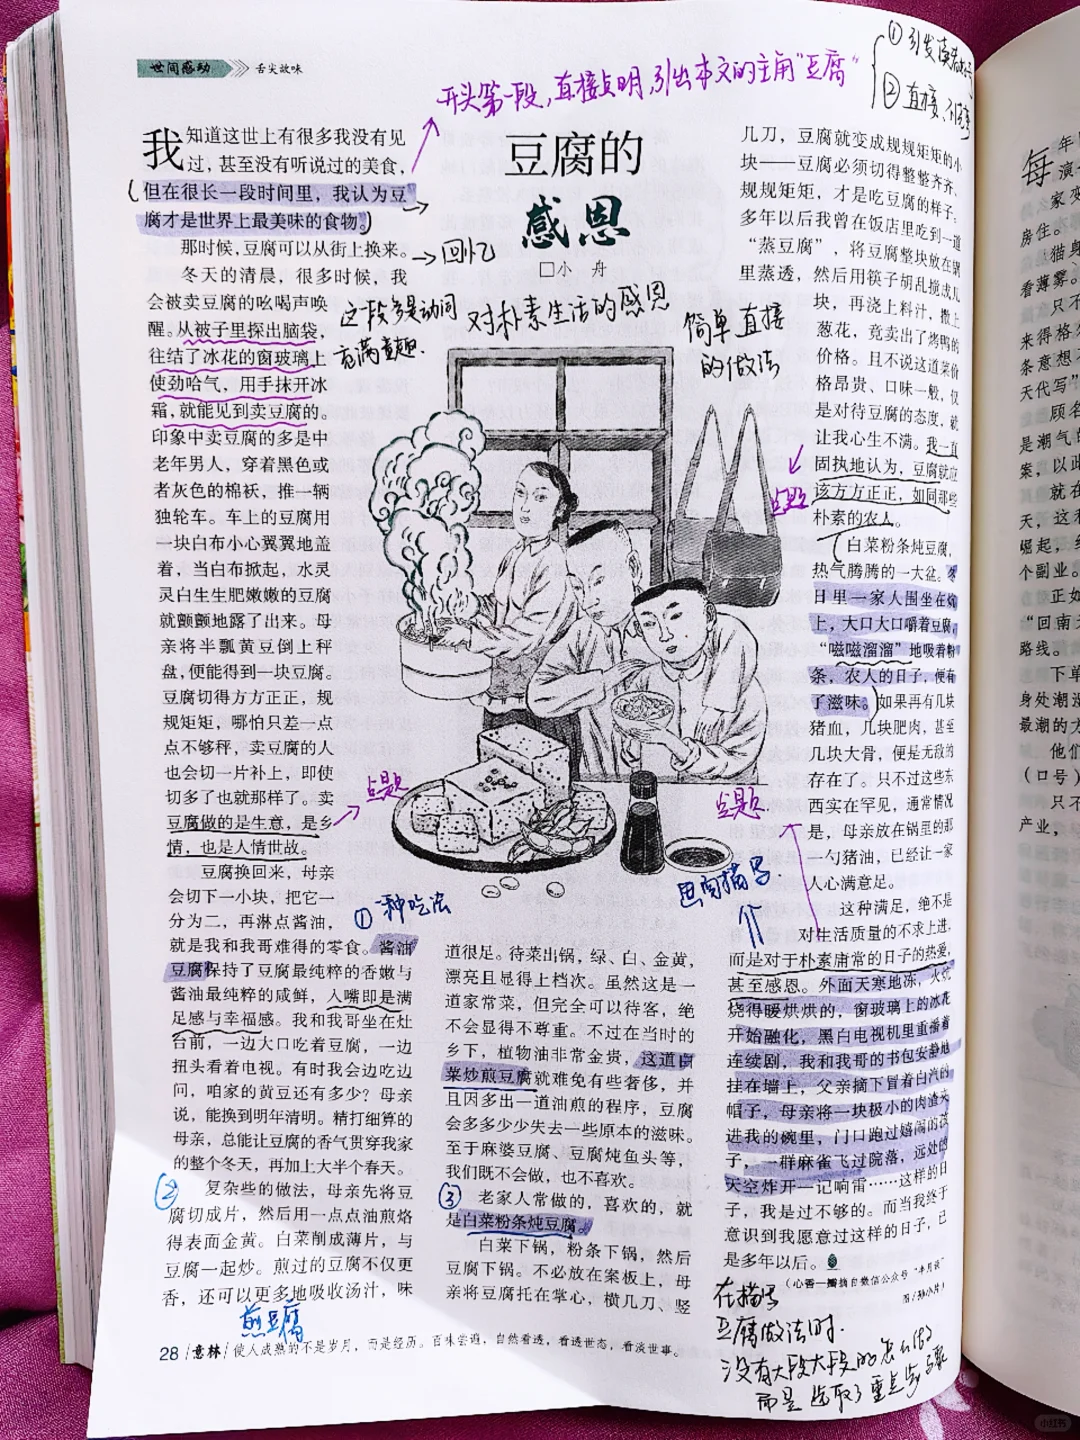 世间感动
舌尖故味
开头第一段，直接点明，引出本文的主角“豆腐”
①引发读者
②直接
豆腐的
感恩
□小 舟
对朴素生活的感恩
我知道这世上有很多我没有见
过，甚至没有听说过的美食，
但在很长一段时间里，我认为豆
腐才是世界上最美味的食物。
那时候，豆腐可以从街上换来。
回忆
冬天的清晨，很多时候，我
会被卖豆腐的吆喝声唤
醒。从被子里探出脑袋，
往结了冰花的窗玻璃上
使劲哈气，用手抹开冰
霜，就能见到卖豆腐的。
这段多是动词
充满童趣.
印象中卖豆腐的多是中
老年男人，穿着黑色或
者灰色的棉袄，推一辆
独轮车。车上的豆腐用
一块白布小心翼翼地盖
着，当白布掀起，水灵
灵白生生肥嫩嫩的豆腐
就颤颤地露了出来。母
亲将半瓢黄豆倒上秤
盘，便能得到一块豆腐。
豆腐切得方方正正，规
规矩矩，哪怕只差一点
点不够秤，卖豆腐的人
也会切一片补上，即使
切多了也就那样了。卖
豆腐做的是生意，是乡
情，也是人情世故。
点题
豆腐换回来，母亲
会切下一小块，把它一
分为二，再淋点酱油，
就是我和我哥难得的零食。酱油
豆腐保持了豆腐最纯粹的香嫩与
酱油最纯粹的咸鲜，入嘴即是满
足感与幸福感。我和我哥坐在灶
台前，一边大口吃着豆腐，一边
扭头看着电视。有时我会边吃边
问，咱家的黄豆还有多少？母亲
说，能换到明年清明。精打细算的
母亲，总能让豆腐的香气贯穿我家
的整个冬天，再加上大半个春天。
①一种吃法
②
复杂些的做法，母亲先将豆
腐切成片，然后用一点点油煎烙
得表面金黄。白菜削成薄片，与
豆腐一起炒。煎过的豆腐不仅更
香，还可以更多地吸收汤汁，味
煎豆腐
道很足。待菜出锅，绿、白、金黄，
漂亮且显得上档次。虽然这是一
道家常菜，但完全可以待客，绝
不会显得不尊重。不过在当时的
乡下，植物油非常金贵，这道白
菜炒煎豆腐就难免有些奢侈，并
且因多出一道油煎的程序，豆腐
会多多少少失去一些原本的滋味。
至于麻婆豆腐、豆腐炖鱼头等，
我们既不会做，也不喜欢。
③
老家人常做的，喜欢的，就
是白菜粉条炖豆腐。
白菜下锅，粉条下锅，然后
豆腐下锅。不必放在案板上，母
亲将豆腐托在掌心，横几刀、竖
几刀，豆腐就变成规规矩矩的小
块——豆腐必须切得整整齐齐、
规规矩矩，才是吃豆腐的样子。
多年以后我曾在饭店里吃到一道
“蒸豆腐”，将豆腐整块放在锅
里蒸透，然后用筷子胡乱搅成几
块，再浇上料汁，撒上
葱花，竟卖出了烤鸭的
价格。且不说这道菜价
格昂贵、口味一般，仅
是对待豆腐的态度，就
让我心生不满。我一直
固执地认为，豆腐就应
该方方正正，如同那些
朴素的农人。
简单直接
的做法
点题
白菜粉条炖豆腐，
热气腾腾的一大盆。冬
日里一家人围坐在炕
上，大口大口嚼着豆腐，
“嗞嗞溜溜”地吸着粉
条，农人的日子，便有
了滋味。如果再有几块
猪血，几块肥肉，甚至
几块大骨，便是无敌的
存在了。只不过这些东
西实在罕见，通常情况
是，母亲放在锅里的那
一勺猪油，已经让一家
人心满意足。
点题
这种满足，绝不是
对生活质量的不求上进，
而是对于朴素庸常的日子的热爱，
甚至感恩。外面天寒地冻，火炕
烧得暖烘烘的，窗玻璃上的冰花
开始融化，黑白电视机里重播着
连续剧，我和我哥的书包安静地
挂在墙上，父亲摘下冒着白汽的
帽子，母亲将一块极小的肉渣夹
进我的碗里，门口跑过嬉闹的孩
子，一群麻雀飞过院落，远处的
天空炸开一记响雷……这样的日
子，我是过不够的。而当我终于
意识到我愿意过这样的日子，已
是多年以后。
（心香一瓣摘自微信公众号“半月谈”
在描写
豆腐做法时.
没有大段大段的怎么做
而是选取了重点步骤
28 |意林| 使人成熟的不是岁月，而是经历。百味尝遍，自然看透，看透世态，看淡世事。
小红书